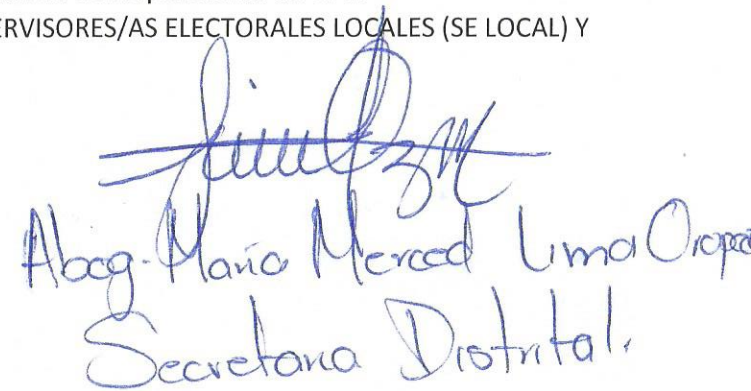 ERVISORES/AS ELECTORALES LOCALES (SE LOCAL) Y
Abog. María Merced Lima Oropez
Secretaria Distrital.